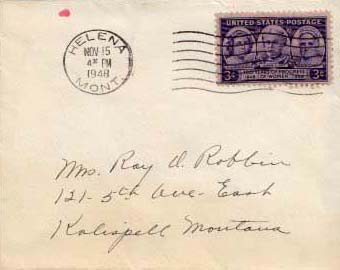 HELENA
NOV 15
4 30 PM
1948
MONT.
UNITED STATES POSTAGE
3¢ 3¢
Mrs. Ray D. Robbin
121-5th Ave-East
Kalispell Montana